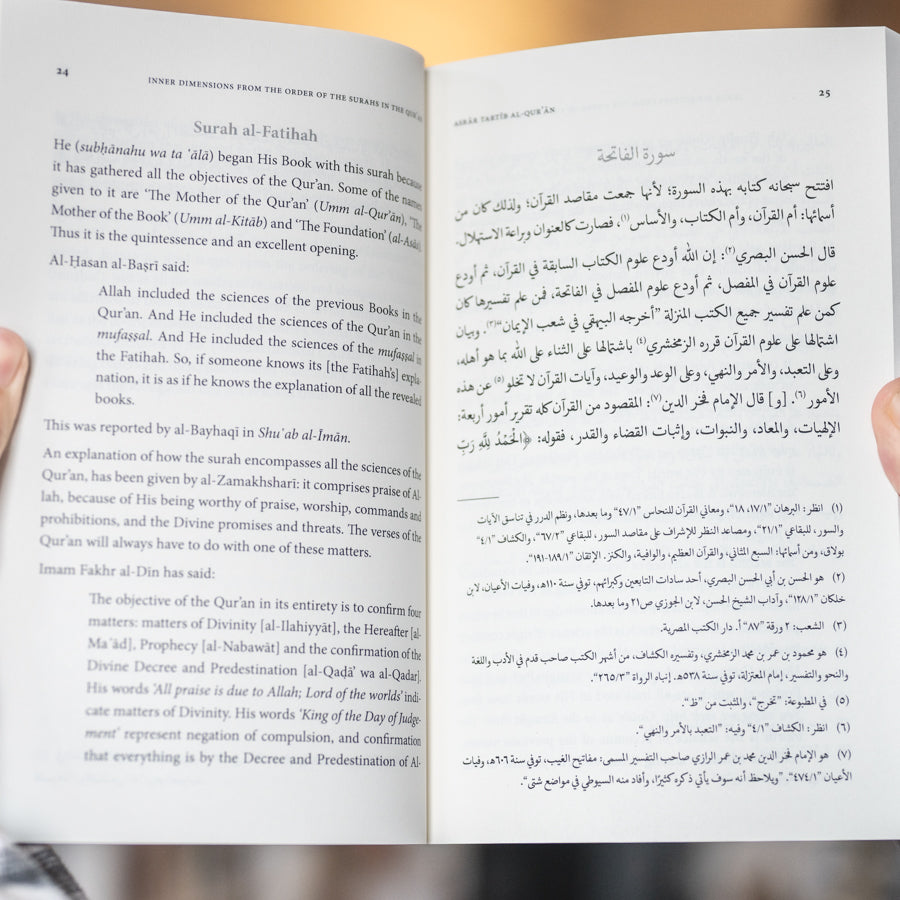 24
INNER DIMENSIONS FROM THE ORDER OF THE SURAHS IN THE QUR'AN
Surah al-Fatihah
He (subḥānahu wa ta ʿālā) began His Book with this surah because
it has gathered all the objectives of the Qur'an. Some of the names
given to it are 'The Mother of the Qur'an' (Umm al-Qur'ān), 'The
Mother of the Book' (Umm al-Kitāb) and 'The Foundation' (al-Asās).
Thus it is the quintessence and an excellent opening.
Al-Ḥasan al-Baṣrī said:
Allah included the sciences of the previous Books in the
Qur'an. And He included the sciences of the Qur'an in the
mufaṣṣal. And He included the sciences of the mufaṣṣal in
the Fatihah. So, if someone knows its [the Fatihah's] expla-
nation, it is as if he knows the explanation of all the revealed
books.
This was reported by al-Bayhaqī in Shuʿab al-Īmān.
An explanation of how the surah encompasses all the sciences of the
Qur'an, has been given by al-Zamakhsharī: it comprises praise of Al-
lah, because of His being worthy of praise, worship, commands and
prohibitions, and the Divine promises and threats. The verses of the
Qur'an will always have to do with one of these matters.
Imam Fakhr al-Dīn has said:
The objective of the Qur'an in its entirety is to confirm four
matters: matters of Divinity [al-Ilahiyyāt], the Hereafter [al-
Maʿād], Prophecy [al-Nabawāt] and the confirmation of the
Divine Decree and Predestination [al-Qaḍā' wa al-Qadar].
His words 'All praise is due to Allah; Lord of the worlds' indi-
cate matters of Divinity. His words 'King of the Day of Judge-
ment' represent negation of compulsion, and confirmation
that everything is by the Decree and Predestination of Al-
ASRĀR TARTĪB AL-QUR'ĀN
25
سورة الفاتحة
افتتح سبحانه كتابه بهذه السورة؛ لأنها جمعت مقاصد القرآن؛ ولذلك كان من
أسمائها: أم القرآن، وأم الكتاب، والأساس(١)، فصارت كالعنوان وبراعة الاستهلال.
قال الحسن البصري(٢): إن الله أودع علوم الكتاب السابقة في القرآن، ثم أودع
علوم القرآن في المفصل، ثم أودع علوم المفصل في الفاتحة، فمن علم تفسيرها كان
كمن علم تفسير جميع الكتب المنزلة "أخرجه البيهقي في شعب الإيمان"(٣). وبيان
اشتمالها على علوم القرآن قرره الزمخشري(٤) باشتمالها على الثناء على الله بما هو أهله،
وعلى التعبد، والأمر والنهي، وعلى الوعد والوعيد، وآيات القرآن لا تخلو(٥) عن هذه
الأمور(٦). [و] قال الإمام فخر الدين(٧): المقصود من القرآن كله تقرير أمور أربعة:
الإلهيات، والمعاد، والنبوات، وإثبات القضاء والقدر، فقوله: ﴿الْحَمْدُ لِلَّهِ رَبِّ
(١) انظر: البرهان "١٧/١، ١٨"، ومعاني القرآن للنحاس "٤٧/١" وما بعدها، ونظم الدرر في تناسق الآيات
والسور، للبقاعي "٢١/١"، ومصاعد النظر للإشراف على مقاصد السور، للبقاعي "٦٧/٢"، والكشاف "٤/١"
بولاق، ومن أسمائها: السبع المثاني، والقرآن العظيم، والوافية، والكنز. الإتقان "١٨٩/١-١٩١".
(٢) هو الحسن بن أبي الحسن البصري، أحد سادات التابعين وكبرائهم، توفي سنة ١١٠هـ، وفيات الأعيان، لابن
خلكان "١٢٨/١"، وآداب الشيخ الحسن، لابن الجوزي ص٢١ وما بعدها.
(٣) الشعب: ٢ ورقة "٨٧" أ. دار الكتب المصرية.
(٤) هو محمود بن عمر بن محمد الزمخشري، وتفسيره الكشاف، من أشهر الكتب صاحب قدم في الأدب واللغة
والنحو والتفسير، إمام المعتزلة، توفي سنة ٥٣٨هـ. إنباه الرواة "٢٦٥/٣".
(٥) في المطبوعة: "تخرج"، والمثبت من "ظ".
(٦) انظر: الكشاف "٤/١" وفيه: "التعبد بالأمر والنهي".
(٧) هو الإمام فخر الدين محمد بن عمر الرازي صاحب التفسير المسمى: مفاتيح الغيب، توفي سنة ٦٠٦هـ، وفيات
الأعيان "٤٧٤/١". "ويلاحظ أنه سوف يأتي ذكره كثيرًا، وأفاد منه السيوطي في مواضع شتى".